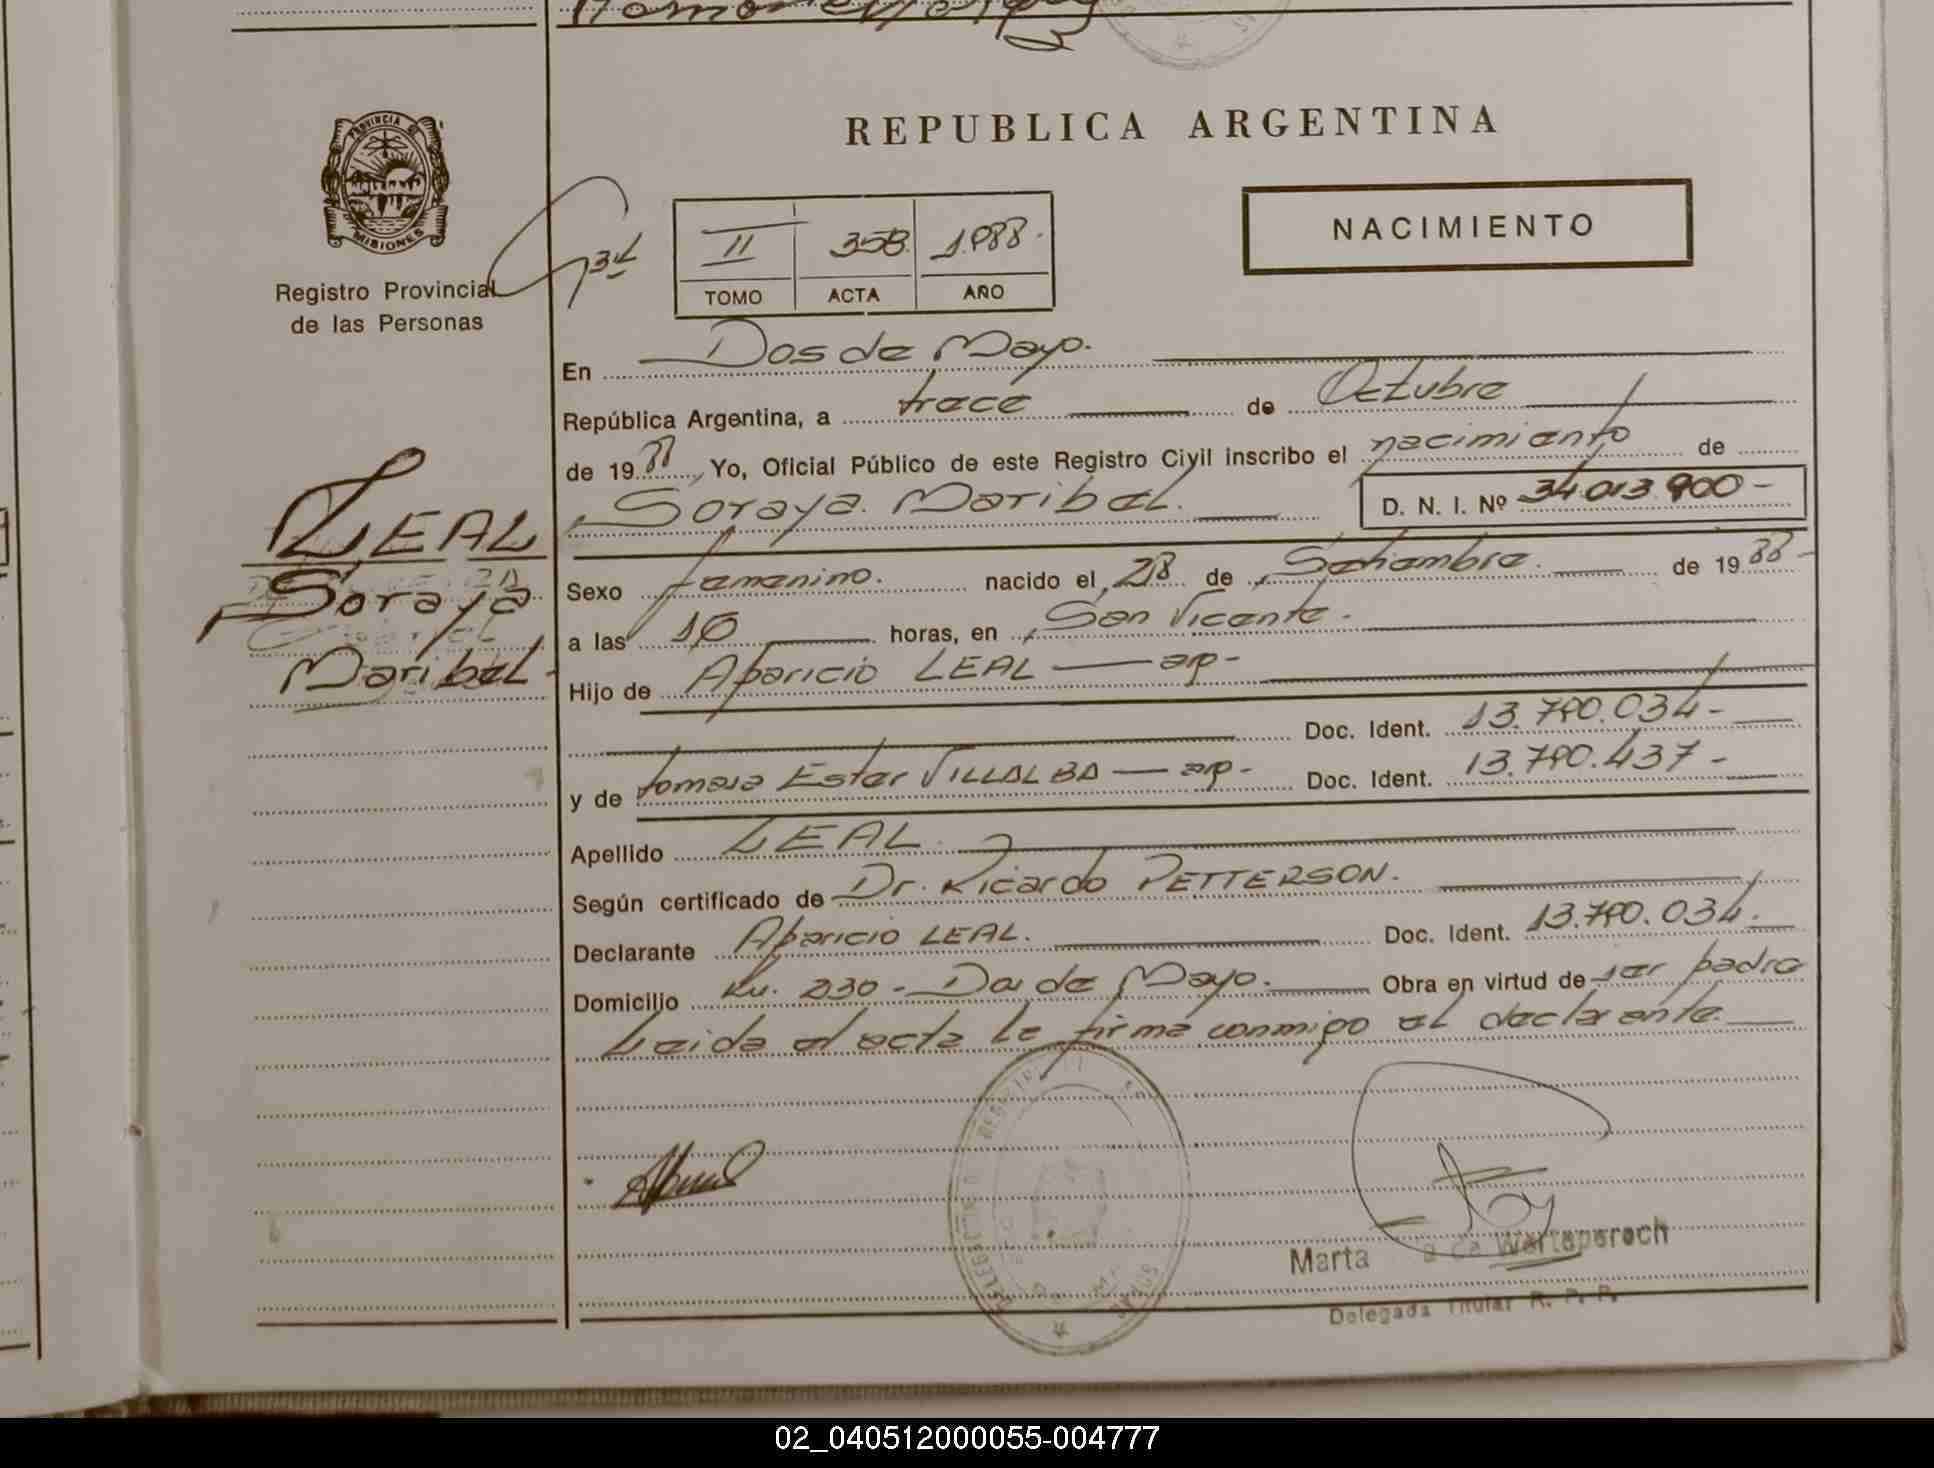 PROVINCIA DE
MISIONES
Registro Provincial
de las Personas
LEAL
Soraya
Maribel
REPUBLICA ARGENTINA
NACIMIENTO
II 358 1.988.
TOMO ACTA AÑO
En Dos de Mayo.
República Argentina, a trece de Octubre
de 1988, Yo, Oficial Público de este Registro Civil inscribo el nacimiento de
Soraya Maribel. D. N. I. Nº 34.013.900-
Sexo femenino. nacido el 28 de Setiembre. de 1988-
a las 10 horas, en San Vicente.
Hijo de Aparicio LEAL — arp-
Doc. Ident. 13.790.034-
y de tomasa Ester VILLALBA — arp- Doc. Ident. 13.790.437-
Apellido LEAL.
Según certificado de Dr. Ricardo PETTERSON.
Declarante Aparicio LEAL. Doc. Ident. 13.790.034.
Domicilio Km. 230 - Dos de Mayo. Obra en virtud de ser padre
Leida el acta la firma conmigo el declarante
Marta de Warteperech
Delegada Titular R. P. P.
02_040512000055-004777